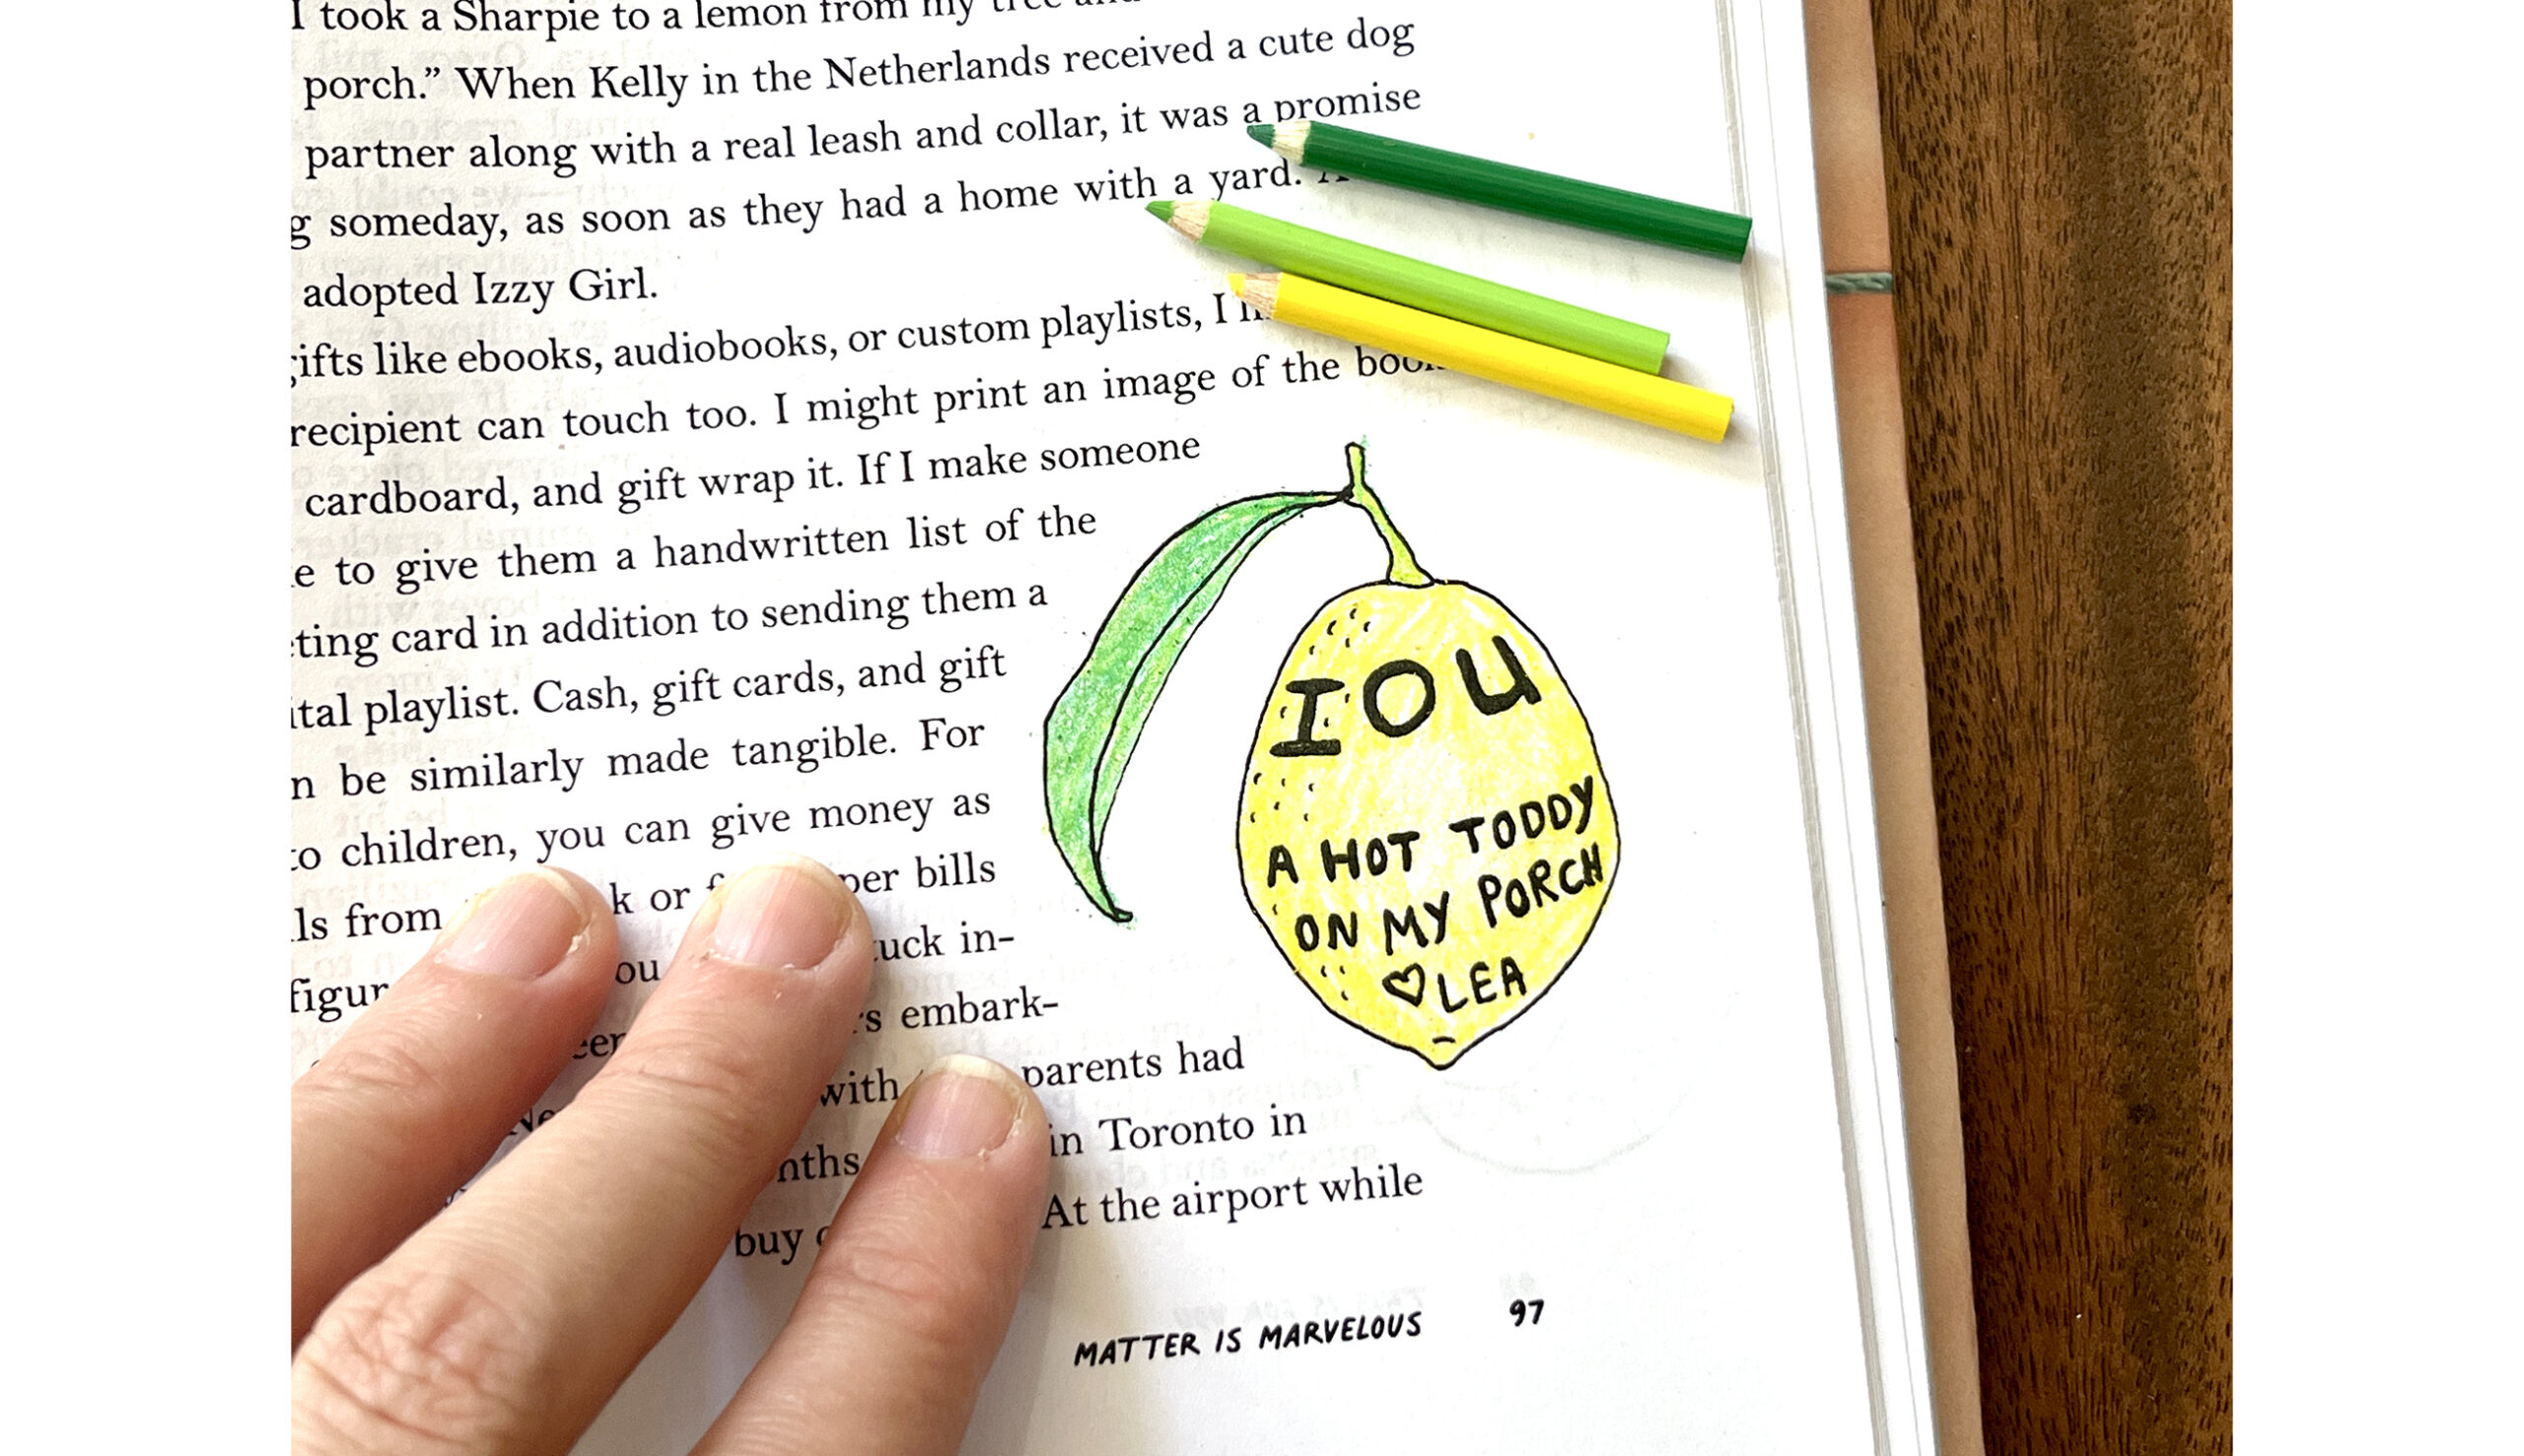 I took a Sharpie to a lemon from my tree and
porch.” When Kelly in the Netherlands received a cute dog
partner along with a real leash and collar, it was a promise
g someday, as soon as they had a home with a yard.
adopted Izzy Girl.
ifts like ebooks, audiobooks, or custom playlists, I
recipient can touch too. I might print an image of the
cardboard, and gift wrap it. If I make someone
e to give them a handwritten list of the
ting card in addition to sending them a
ital playlist. Cash, gift cards, and gift
n be similarly made tangible. For
to children, you can give money as
ls from k or per bills
figur ou tuck in-
er rs embark-
with parents had
nths in Toronto in
buy At the airport while
IOU
A HOT TODDY
ON MY PORCH
♡ LEA
MATTER IS MARVELOUS 97